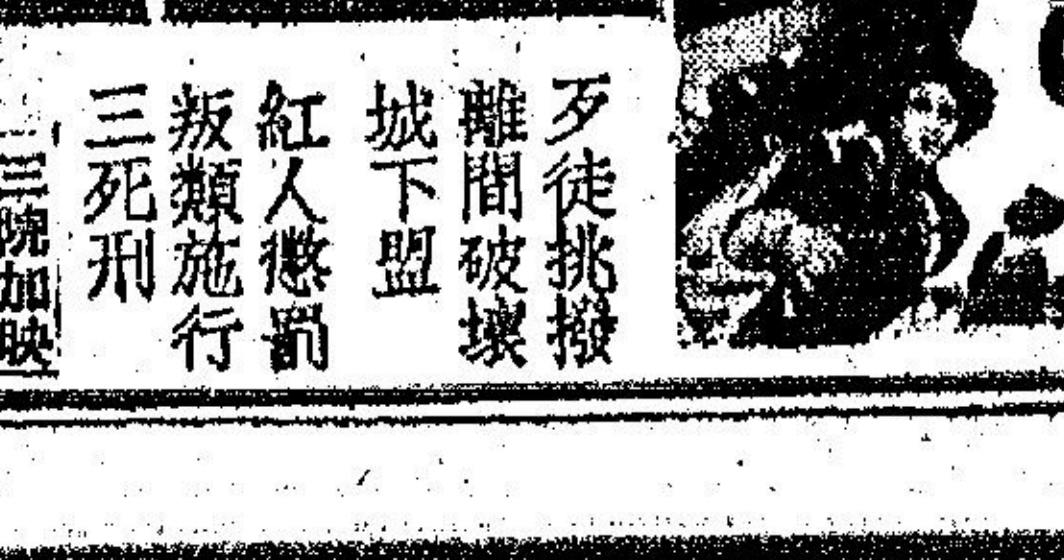 歹徒挑撥
離間破壞
城下盟
紅人懲罰
叛類施行
三死刑
三院加映